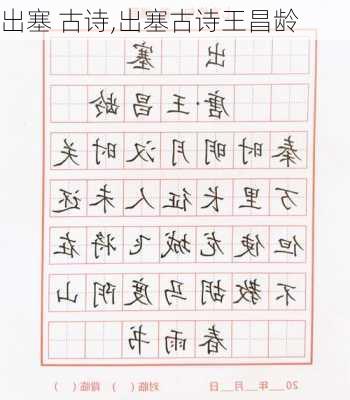 出塞 古诗,出塞古诗王昌龄
出塞
唐·王昌龄
秦时明月汉时关
万里长征人未还
但使龙城飞将在
不教胡马度阴山
春雨书
20__年__月__日 对临( ) 描临( )